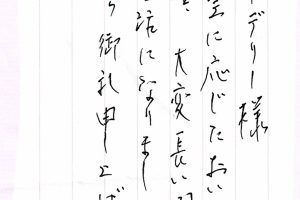 デリー様
に応じたおい
大変長い
話になりまし
御礼申し上げ